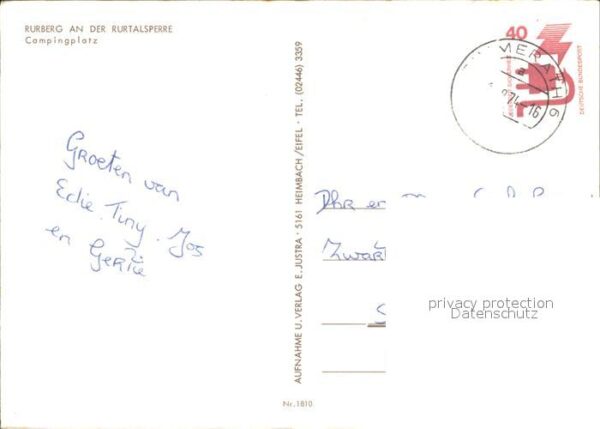 RURBERG AN DER RURTALSPERRE
Campingplatz
Groeten van
Edie. Tiny. Jos
en Gerrie
AUFNAHME U. VERLAG E. JUSTRA · 5161 HEIMBACH/EIFEL · TEL. (02446) 3359
Nr. 1810
40
DEUTSCHE BUNDESPOST
MERATH 6
74-16
Dhr en
Zwart
privacy protection
Datenschutz